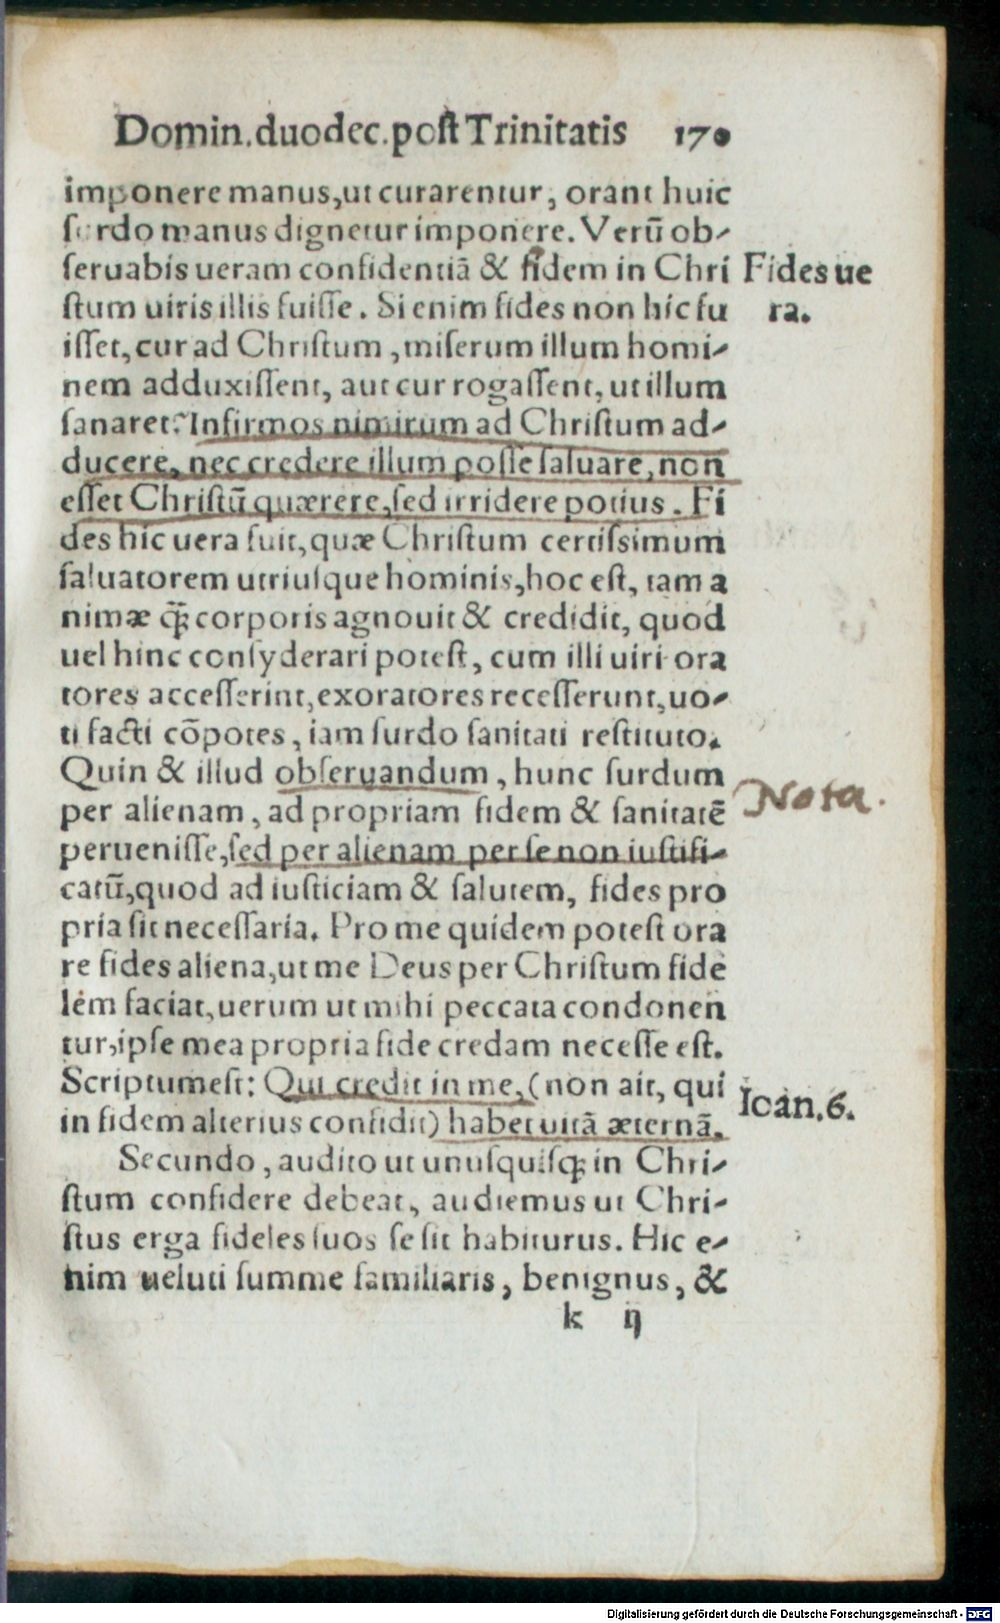 Domin.duodec.post Trinitatis 170
imponere manus,ut curarentur, orant huic
surdo manus dignetur imponere. Verū ob-
seruabis ueram confidentiā & fidem in Chri
Fides ue
stum uiris illis fuisse. Si enim fides non hic fu
ra.
isset,cur ad Christum,miserum illum homi-
nem adduxissent, aut cur rogassent, ut illum
sanaret? Infirmos nimirum ad Christum ad-
ducere, nec credere illum posse saluare, non
esset Christū quærere,sed irridere potius. Fi
des hic uera fuit,quæ Christum certissimum
saluatorem utriusque hominis,hoc est, tam a
nimæ q̃ꝫ corporis agnouit & credidit, quod
uel hinc consyderari potest, cum illi uiri ora
tores accesserint,exoratores recesserunt,uo-
ti facti cōpotes, iam surdo sanitati restituto.
Quin & illud obseruandum, hunc surdum
per alienam, ad propriam fidem & sanitatē
Nota.
peruenisse,sed per alienam per se non iustifi-
catū,quod ad iusticiam & salutem, fides pro
pria sit necessaria. Pro me quidem potest ora
re fides aliena,ut me Deus per Christum fide
lem faciat,uerum ut mihi peccata condonen
tur,ipse mea propria fide credam necesse est.
Scriptum est: Qui credit in me,(non ait, qui
Ioan.6.
in fidem alterius confidit) habet uitā æternā.
Secundo, audito ut unusquisqꝫ in Chri-
stum confidere debeat, audiemus ut Chri-
stus erga fideles suos se sit habiturus. Hic e-
nim ueluti summe familiaris, benignus, &
k ij
Digitalisierung gefördert durch die Deutsche Forschungsgemeinschaft - DFG